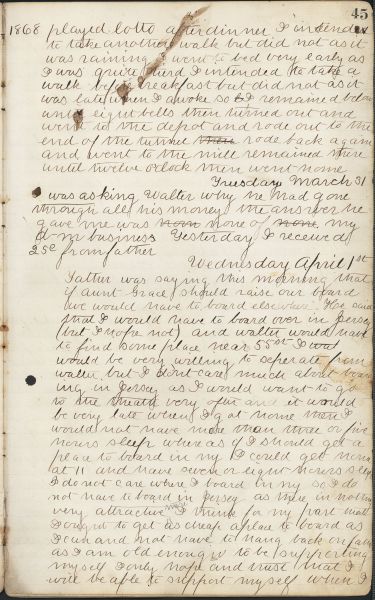 45
1868 played lotto after dinner I intended
to take another walk but did not as it
was raining I went to bed very early as
I was quite tired I intended to take a
walk before breakfast but did not as it
was late when I awoke so I remained below
until eight bells then turned out and
went to the depot and rode out to the
end of the tunnel then rode back again
and went to the mill remained there
until twelve oclock then went home
Tuesday March 31
I was asking Walter why he had gone
through all his money the answer he
gave me was none of none my
d—m business Yesterday I received
25c from father
Wednesday April 1st
Father was saying this morning that
if aunt Grace should raise our board
we would have to board elsewhere He said
that I would have to board over in Jersey
(but I hope not) and Walter would have
to find some place near 55 st I
would be very willing to seperate from
walter but I dont care much about board
ing in Jersey as I would want to go
to the theatre very often and it would
be very late when I got home then I
would not have more than three or five
hours sleep where as if I should get a
place to board in my I could get home
at 11 and have seven or eight hours sleep
I do not care where I board in my so I do
not have to board in Jersey as there is nothing
very attractive I think for my part that
I ought to get as cheap a place to board as
I can and not have to hang back on father
as I am old enough to be supporting
myself I only hope and trust that I
will be able to support myself when I